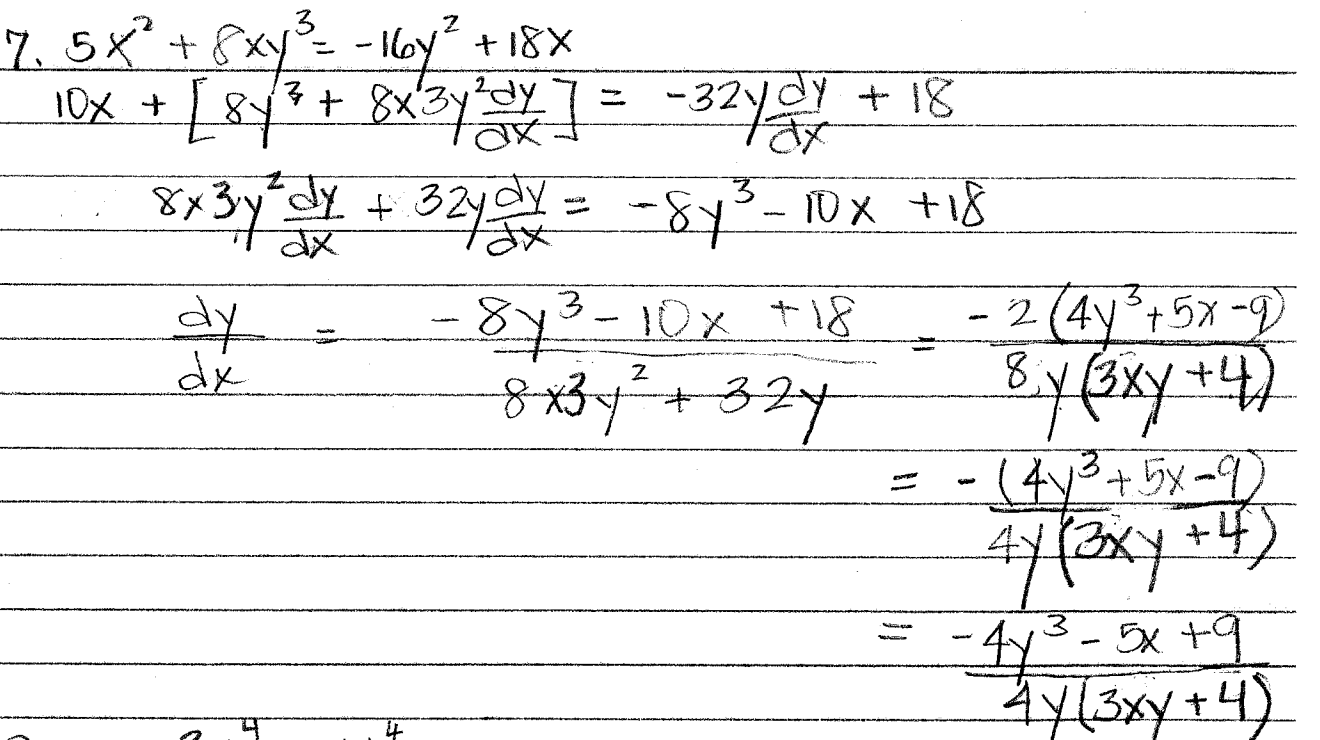 7. 5x² + 8xy³ = -16y² + 18x
10x + [8y³ + 8x3y² dy/dx] = -32y dy/dx + 18
8x3y² dy/dx + 32y dy/dx = -8y³ - 10x + 18
dy/dx = (-8y³ - 10x + 18)/(8x3y² + 32y) = -2(4y³ + 5x - 9)/(8y(3xy + 4))
= -(4y³ + 5x - 9)/(4y(3xy + 4))
= (-4y³ - 5x + 9)/(4y(3xy + 4))